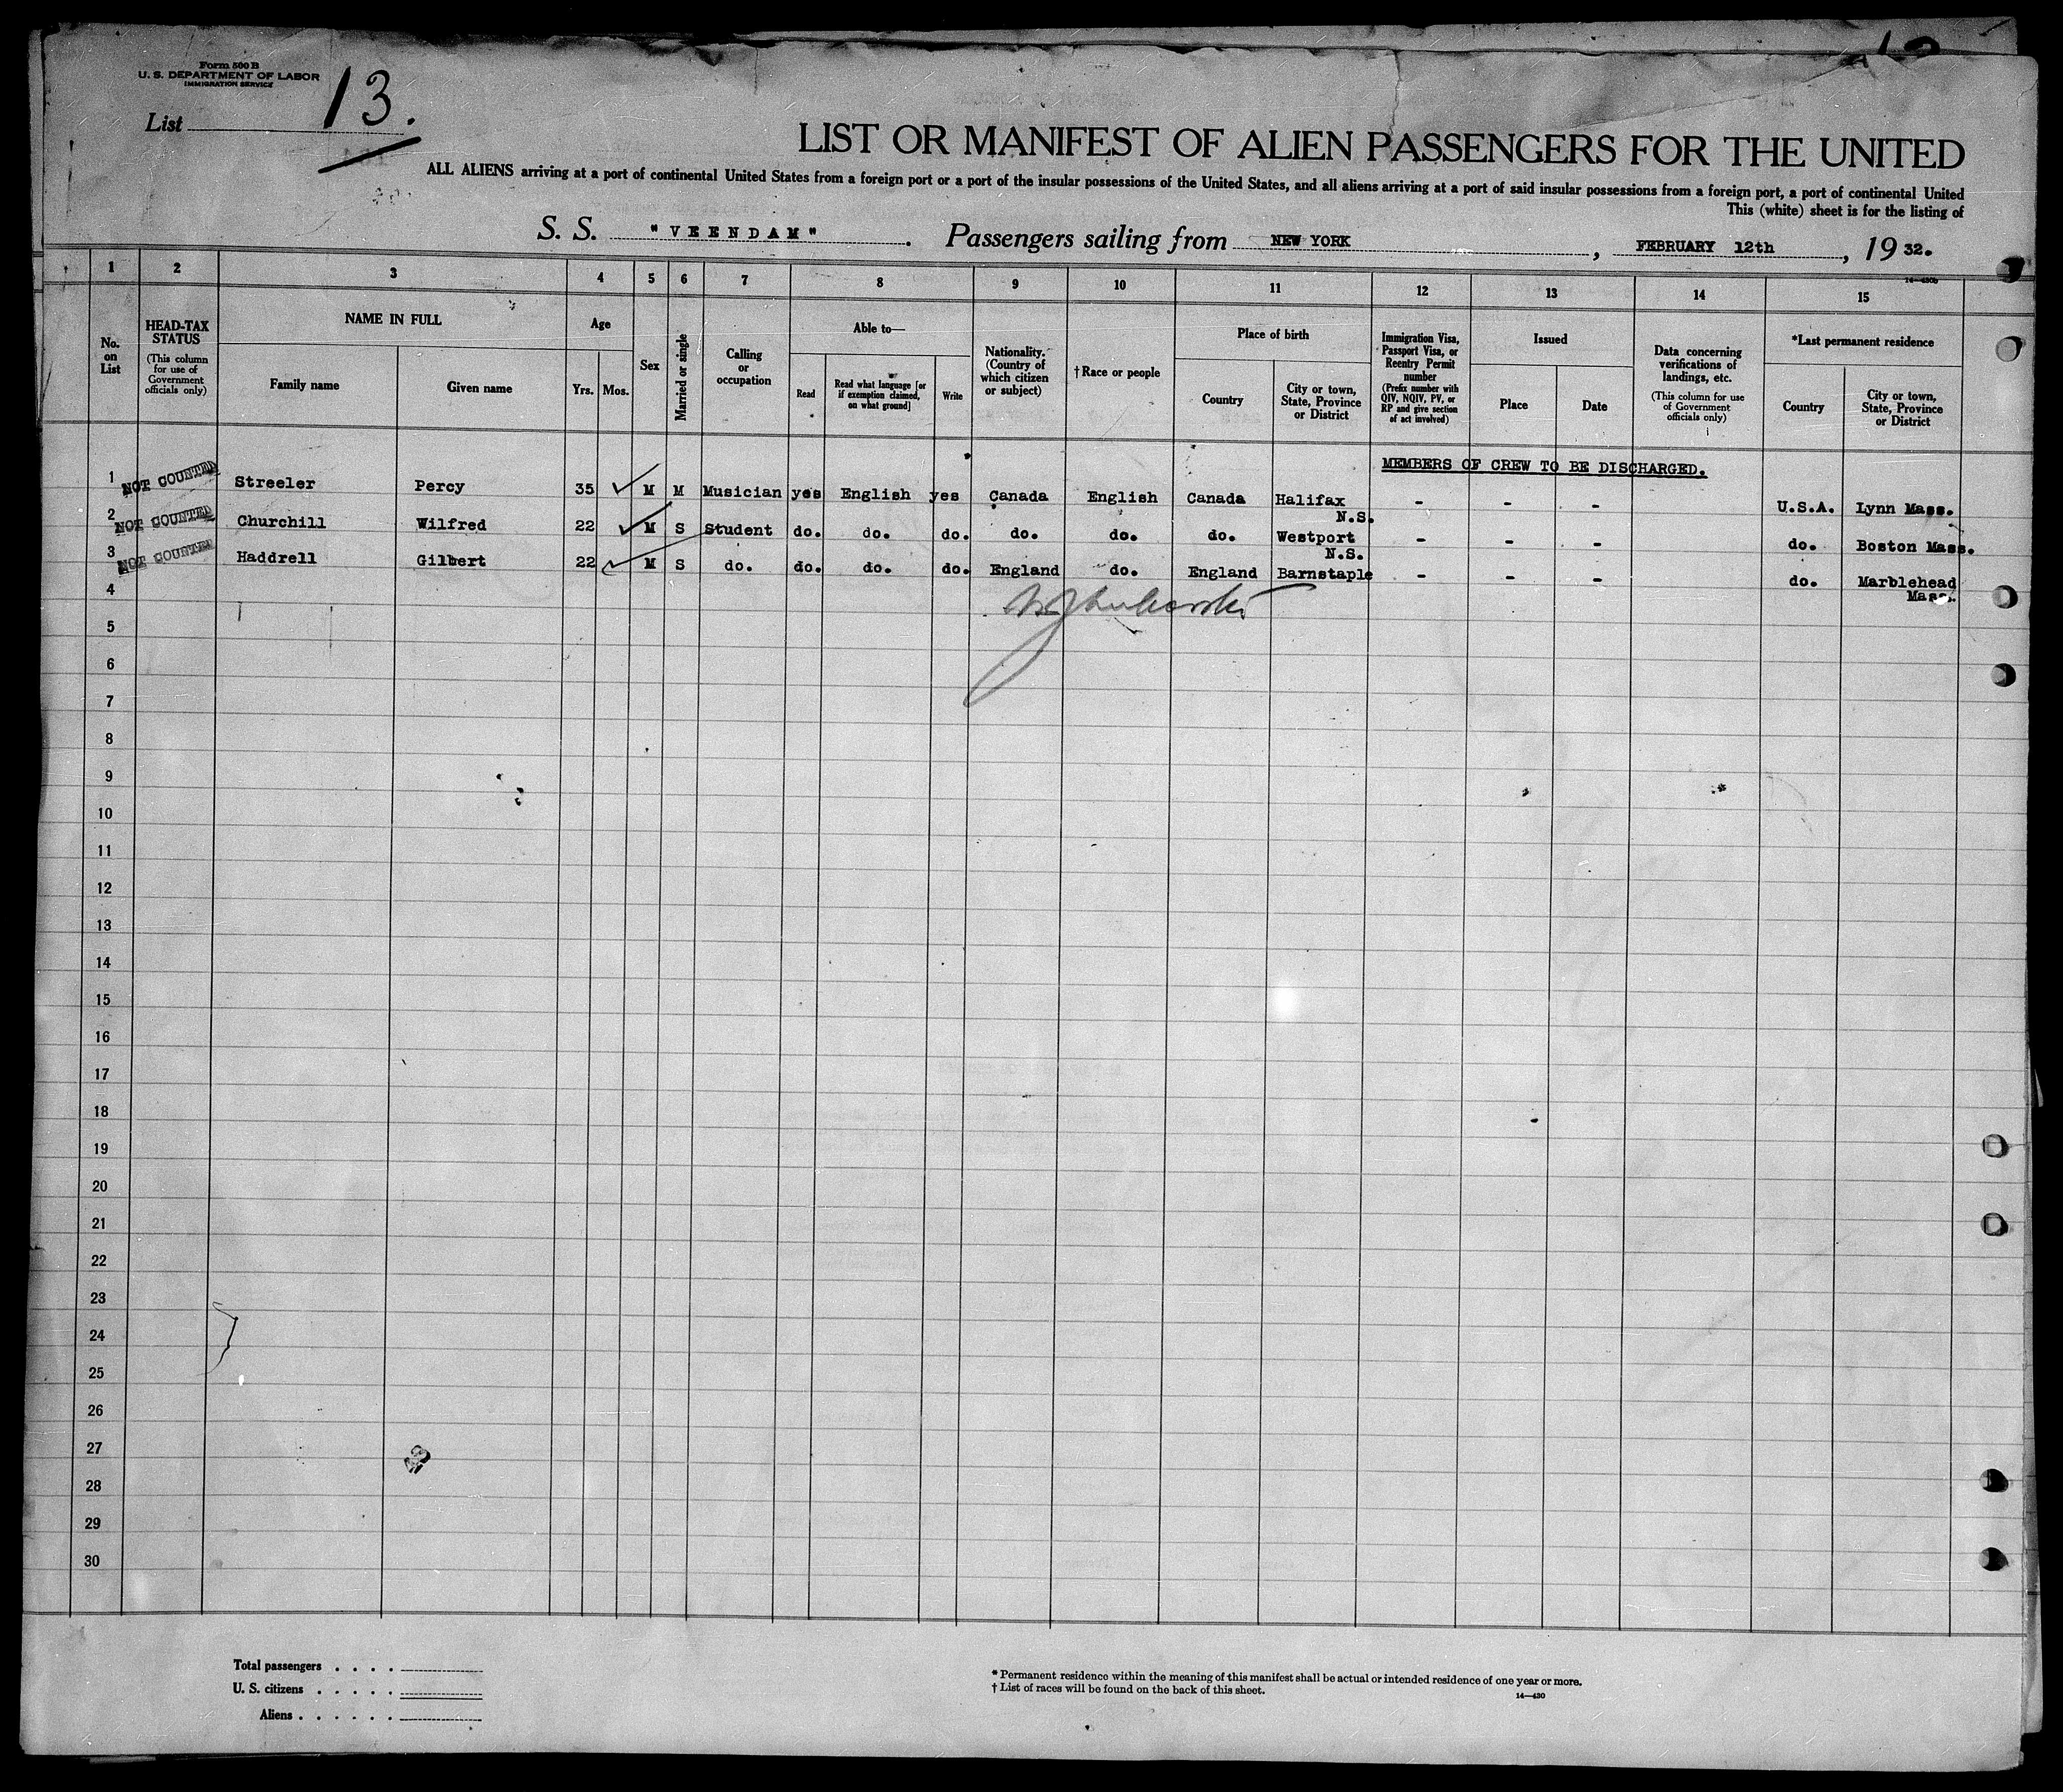 Form 500 B
U. S. DEPARTMENT OF LABOR
IMMIGRATION SERVICE
List 13.
LIST OR MANIFEST OF ALIEN PASSENGERS FOR THE UNITED
ALL ALIENS arriving at a port of continental United States from a foreign port or a port of the insular possessions of the United States, and all aliens arriving at a port of said insular possessions from a foreign port, a port of continental United
This (white) sheet is for the listing of
S. S. "VEENDAM". Passengers sailing from NEW YORK, FEBRUARY 12th, 1932.
14—430b
1 2 3 4 5 6 7 8 9 10 11 12 13 14 15
No. on List
HEAD-TAX STATUS
(This column for use of Government officials only)
NAME IN FULL
Family name Given name
Age
Yrs. Mos.
Sex
Married or single
Calling or occupation
Able to—
Read
Read what language [or if exemption claimed, on what ground]
Write
Nationality. (Country of which citizen or subject)
†Race or people
Place of birth
Country
City or town, State, Province or District
Immigration Visa, Passport Visa, or Reentry Permit number
(Prefix number with QIV, NQIV, PV, or RP and give section of act involved)
Issued
Place Date
Data concerning verifications of landings, etc.
(This column for use of Government officials only)
*Last permanent residence
Country
City or town, State, Province or District
MEMBERS OF CREW TO BE DISCHARGED.
1 NOT COUNTED Streeler Percy 35 M M Musician yes English yes Canada English Canada Halifax N.S. - - - U.S.A. Lynn Mass.
2 NOT COUNTED Churchill Wilfred 22 M S Student do. do. do. do. do. do. Westport N.S. - - - do. Boston Mass.
3 NOT COUNTED Haddrell Gilbert 22 M S do. do. do. do. England do. England Barnstaple - - - do. Marblehead Mass.
4
5
6
7
8
9
10
11
12
13
14
15
16
17
18
19
20
21
22
23
24
25
26
27
28
29
30
Total passengers . . . .
U. S. citizens . . . . .
Aliens . . . . . .
* Permanent residence within the meaning of this manifest shall be actual or intended residence of one year or more.
† List of races will be found on the back of this sheet.
14—430